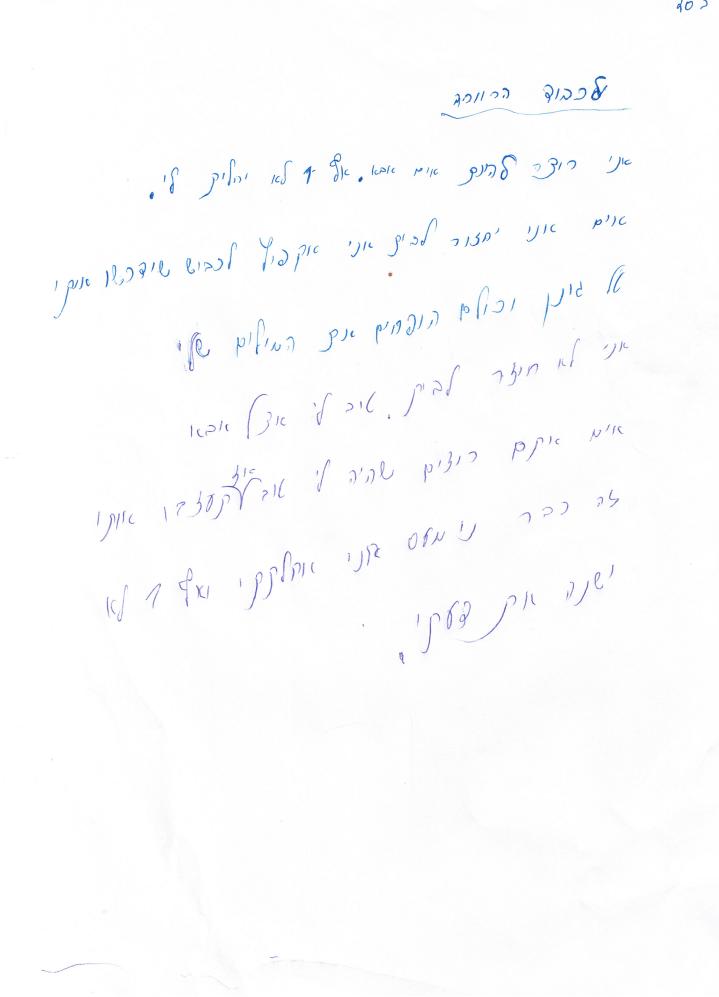 לכבוד הרווחה
אני רוצה להיות אים אבא. אף 1 לא יחליט לי.
אים אני יחזור לבית אני אקפיץ לכביש שידרשו אותי
וכולם הופחים את המילים שלי
אני לא חוזר לבית. טיב לי אצל אבא
אים אתם רוצים שהיה לי טוב אז תעזבו אותי
זה כבר נימעס אני אחלתתי ואף 1 לא
ישנה את דעתי.